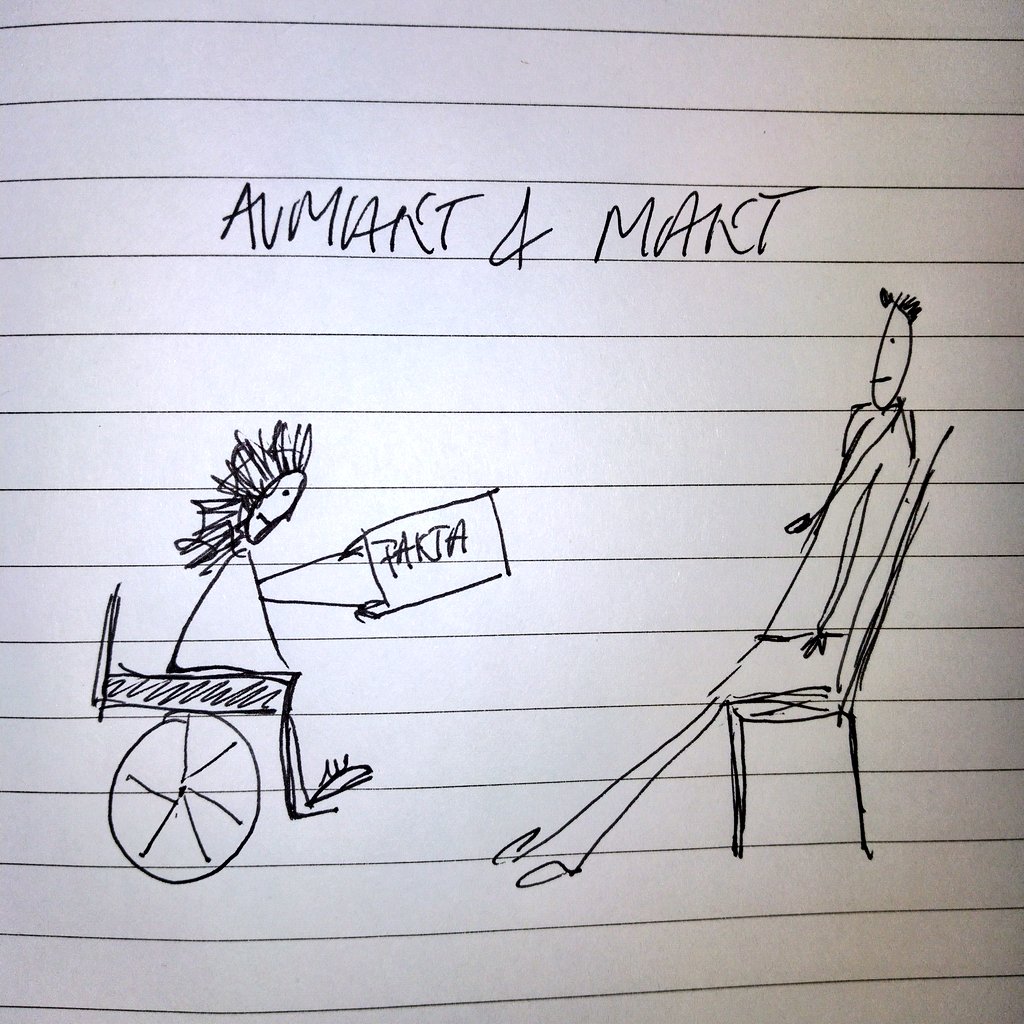 AVMAKT & MAKT
FAKTA